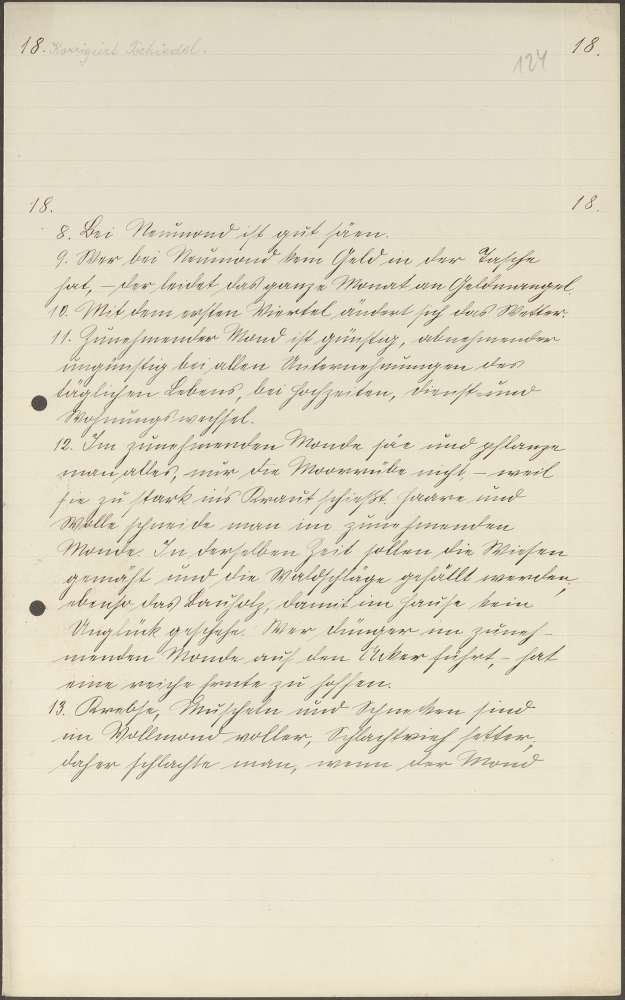 18. Korrigiert Tschiedel. 18.
124
18. 18.
8. Bei Neumond ist gut säen.
9. Wer bei Neumond kein Geld in der Tasche
hat, – der leidet das ganze Monat an Geldmangel.
10. Mit dem ersten Viertel ändert sich das Wetter.
11. Zunehmender Mond ist günstig, abnehmender
ungünstig bei allen Unternehmungen des
täglichen Lebens, bei Hochzeiten, Dienst- und
Wohnungswechsel.
12. Im zunehmenden Monde säe und pflanze
man alles, nur die Moorrübe nicht, – weil
sie zu stark ins Kraut schießt. Haare und
Wolle schneide man im zunehmenden
Monde. In derselben Zeit sollen die Wiesen
gemäht und die Waldschläge gefällt werden,
ebenso das Bauholz, damit im Hause kein
Unglück geschehe. Wer Dünger im zuneh-
menden Monde auf den Acker führt, – hat
eine reiche Ernte zu hoffen.
13. Krebse, Muscheln und Schneken sind
im Vollmond voller, Schlachtvieh fetter,
daher schlachte man, wenn der Mond